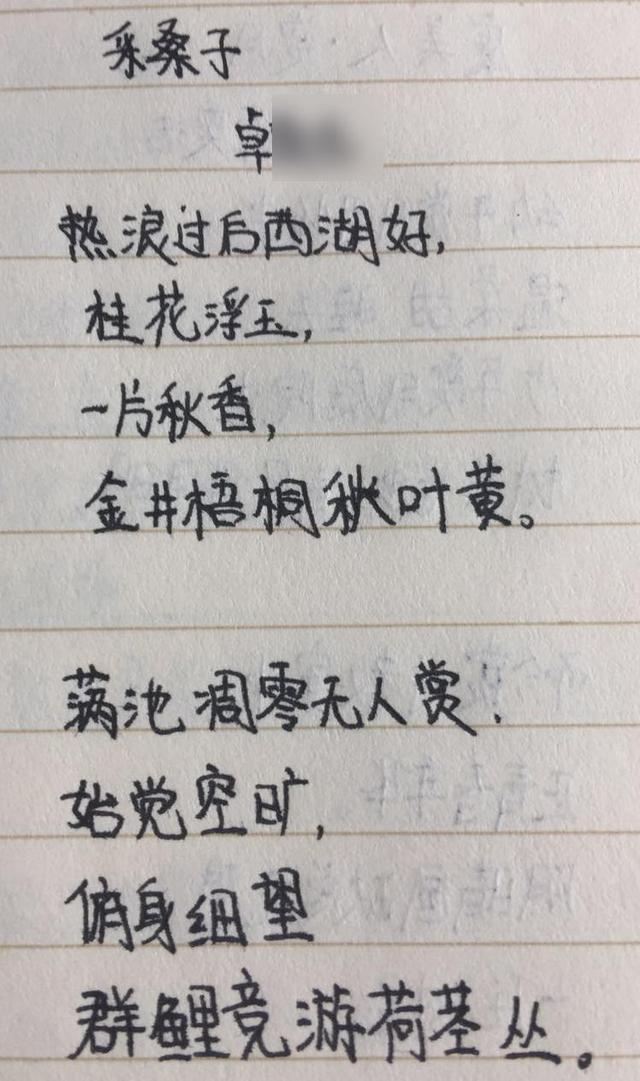 采桑子
卓
热浪过后西湖好,
桂花浮玉,
一片秋香,
金井梧桐秋叶黄。
满池凋零无人赏.
始觉空旷,
俯身细望
群鲤竞游荷茎丛。